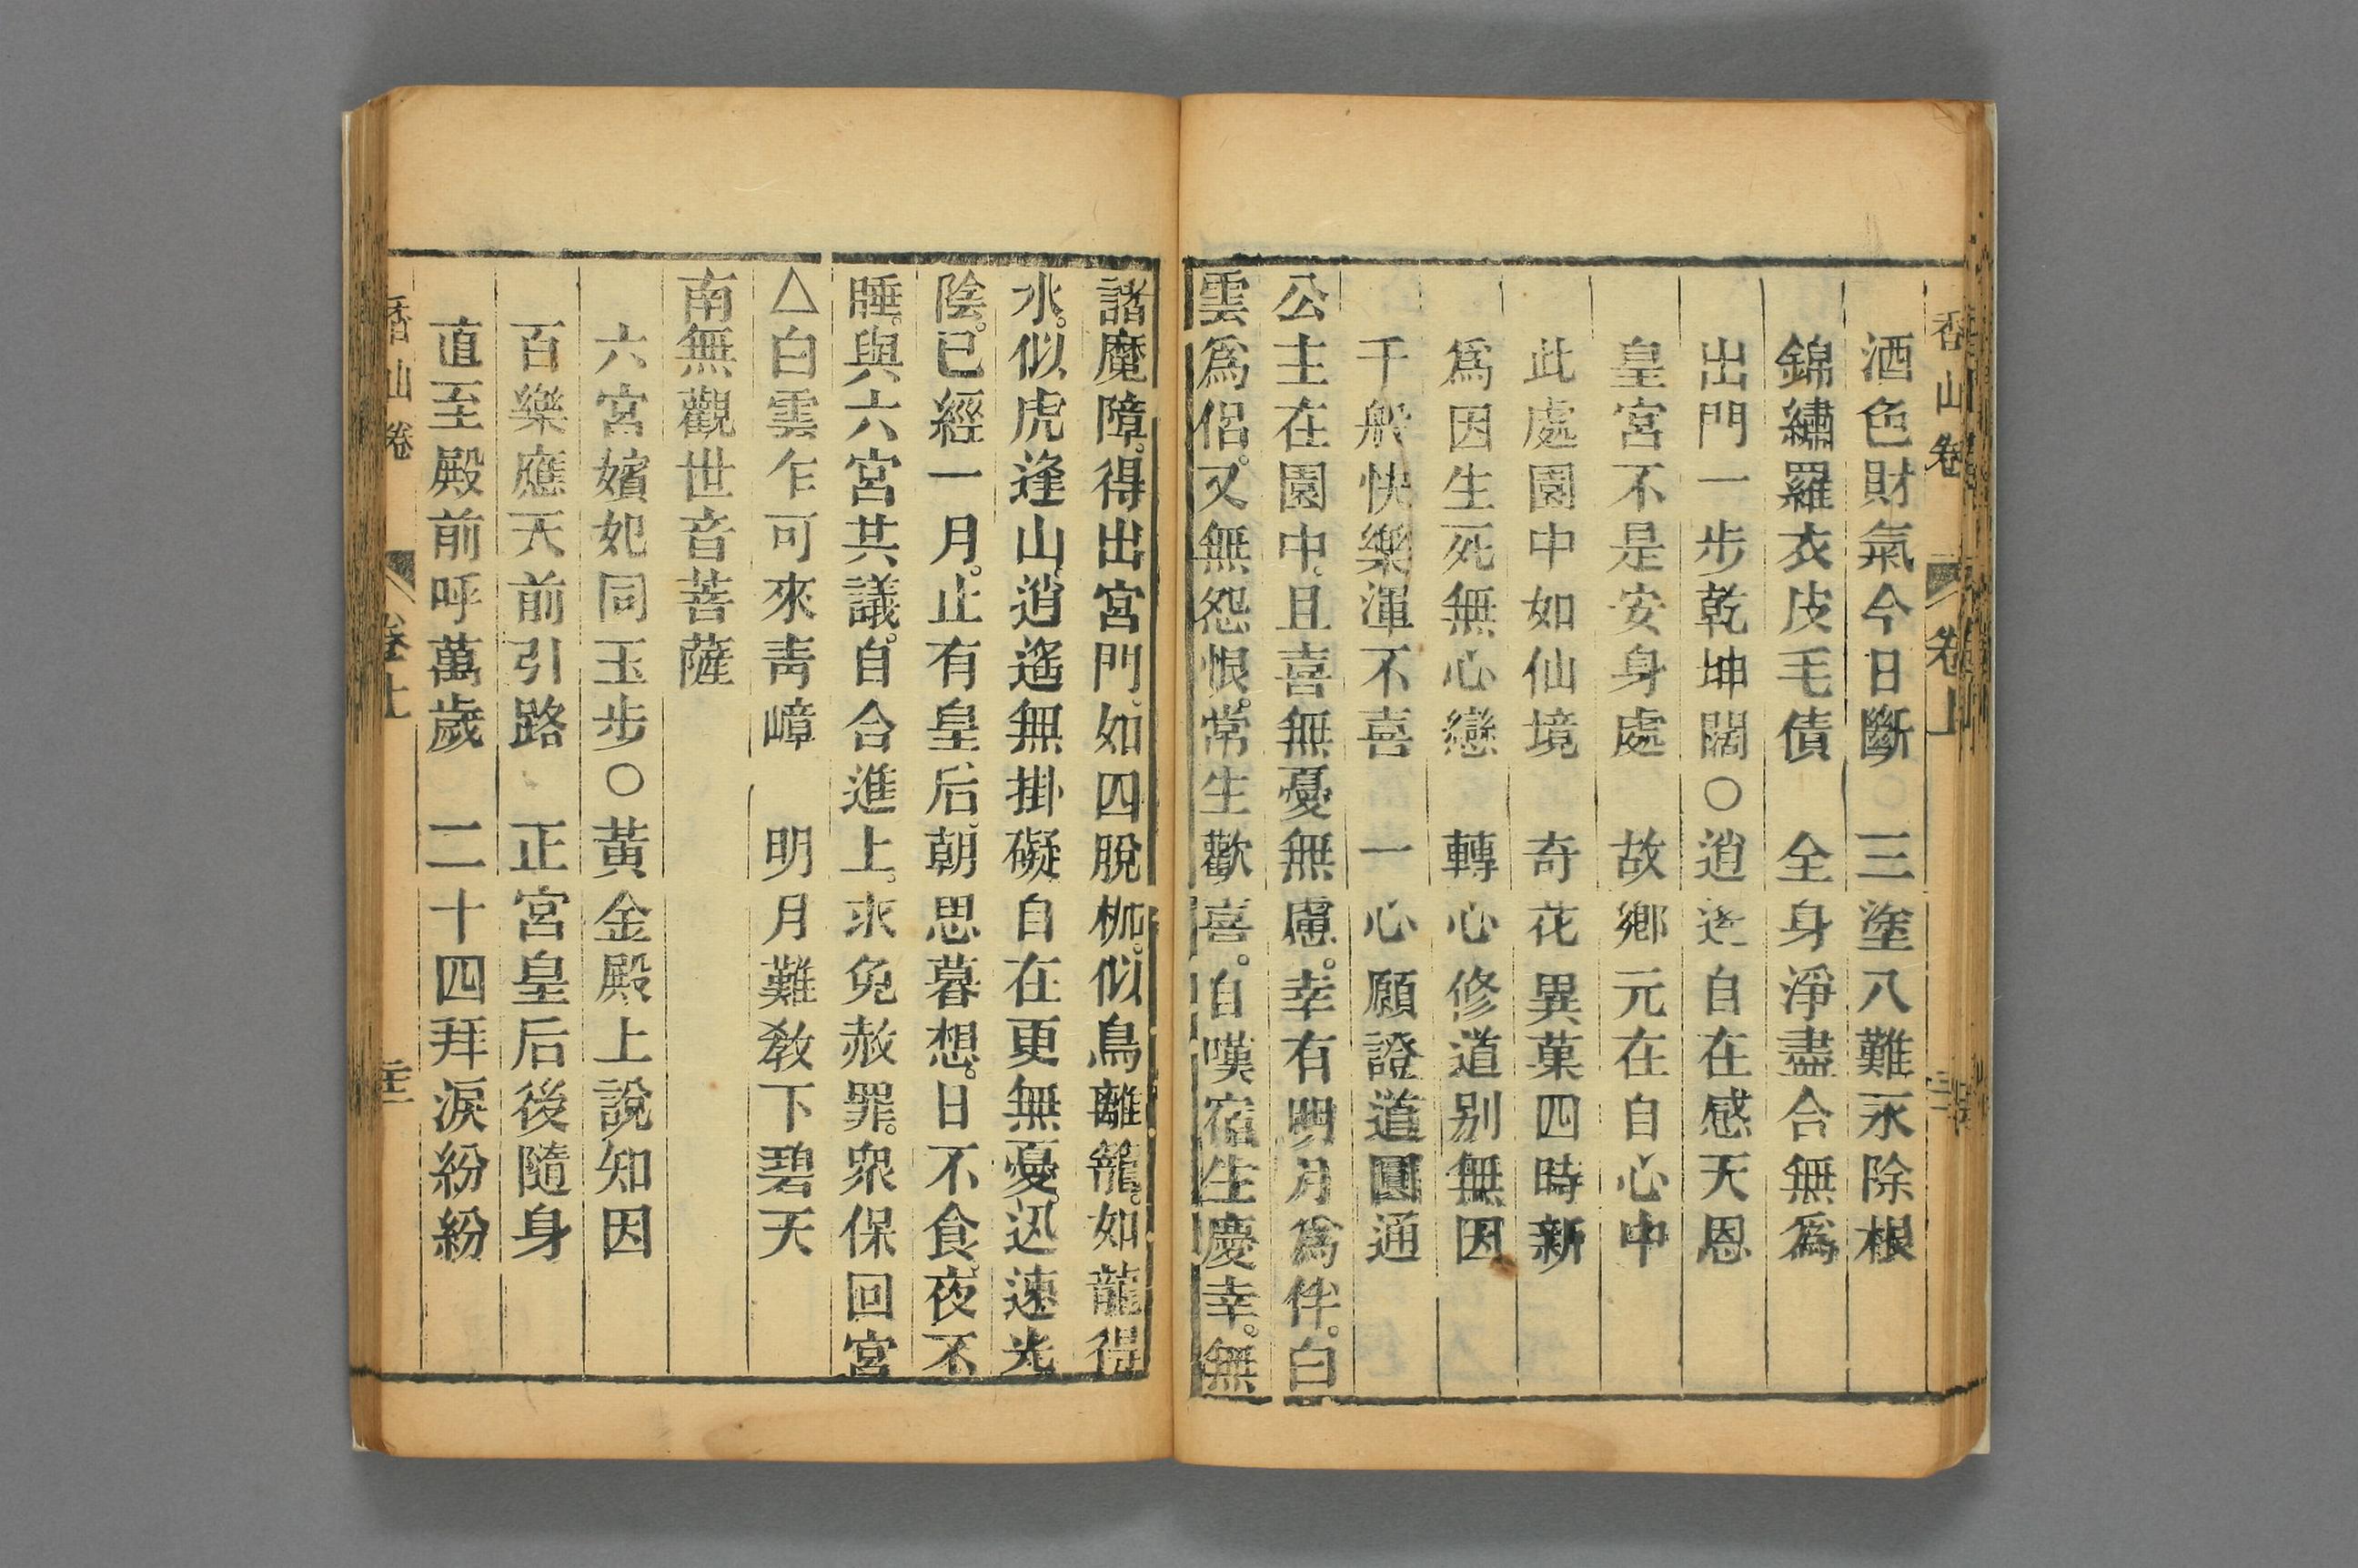 香山卷 卷上
酒色財氣今日斷 三塗八難永除根
錦繡羅衣皮毛債 全身淨盡合無爲
出門一步乾坤闊○逍遙自在感天恩
皇宮不是安身處 故鄉元在自心中
此處園中如仙境 奇花異菓四時新
爲因生死無心戀 轉心修道别無因
千般快樂渾不喜 一心願證道圓通
公主在園中。且喜無憂無慮。幸有明月爲伴。白
雲爲侶。又無怨恨。常生歡喜。自嘆宿生慶幸。無
諸魔障。得出宮門。如四脫枷。似鳥離籠。如龍得
水。似虎逢山。逍遙無掛礙自在更無憂。迅速光
陰。已經一月。止有皇后。朝思暮想。日不食。夜不
睡。與六宮共議。自合進上。求免赦罪。眾保回宮
△白雲乍可來靑嶂 明月難敎下碧天
南無觀世音菩薩
六宮嬪妃同玉步○黃金殿上說知因
百樂應天前引路 正宮皇后後隨身
直至殿前呼萬歲 二十四拜淚紛紛
香山卷 卷上